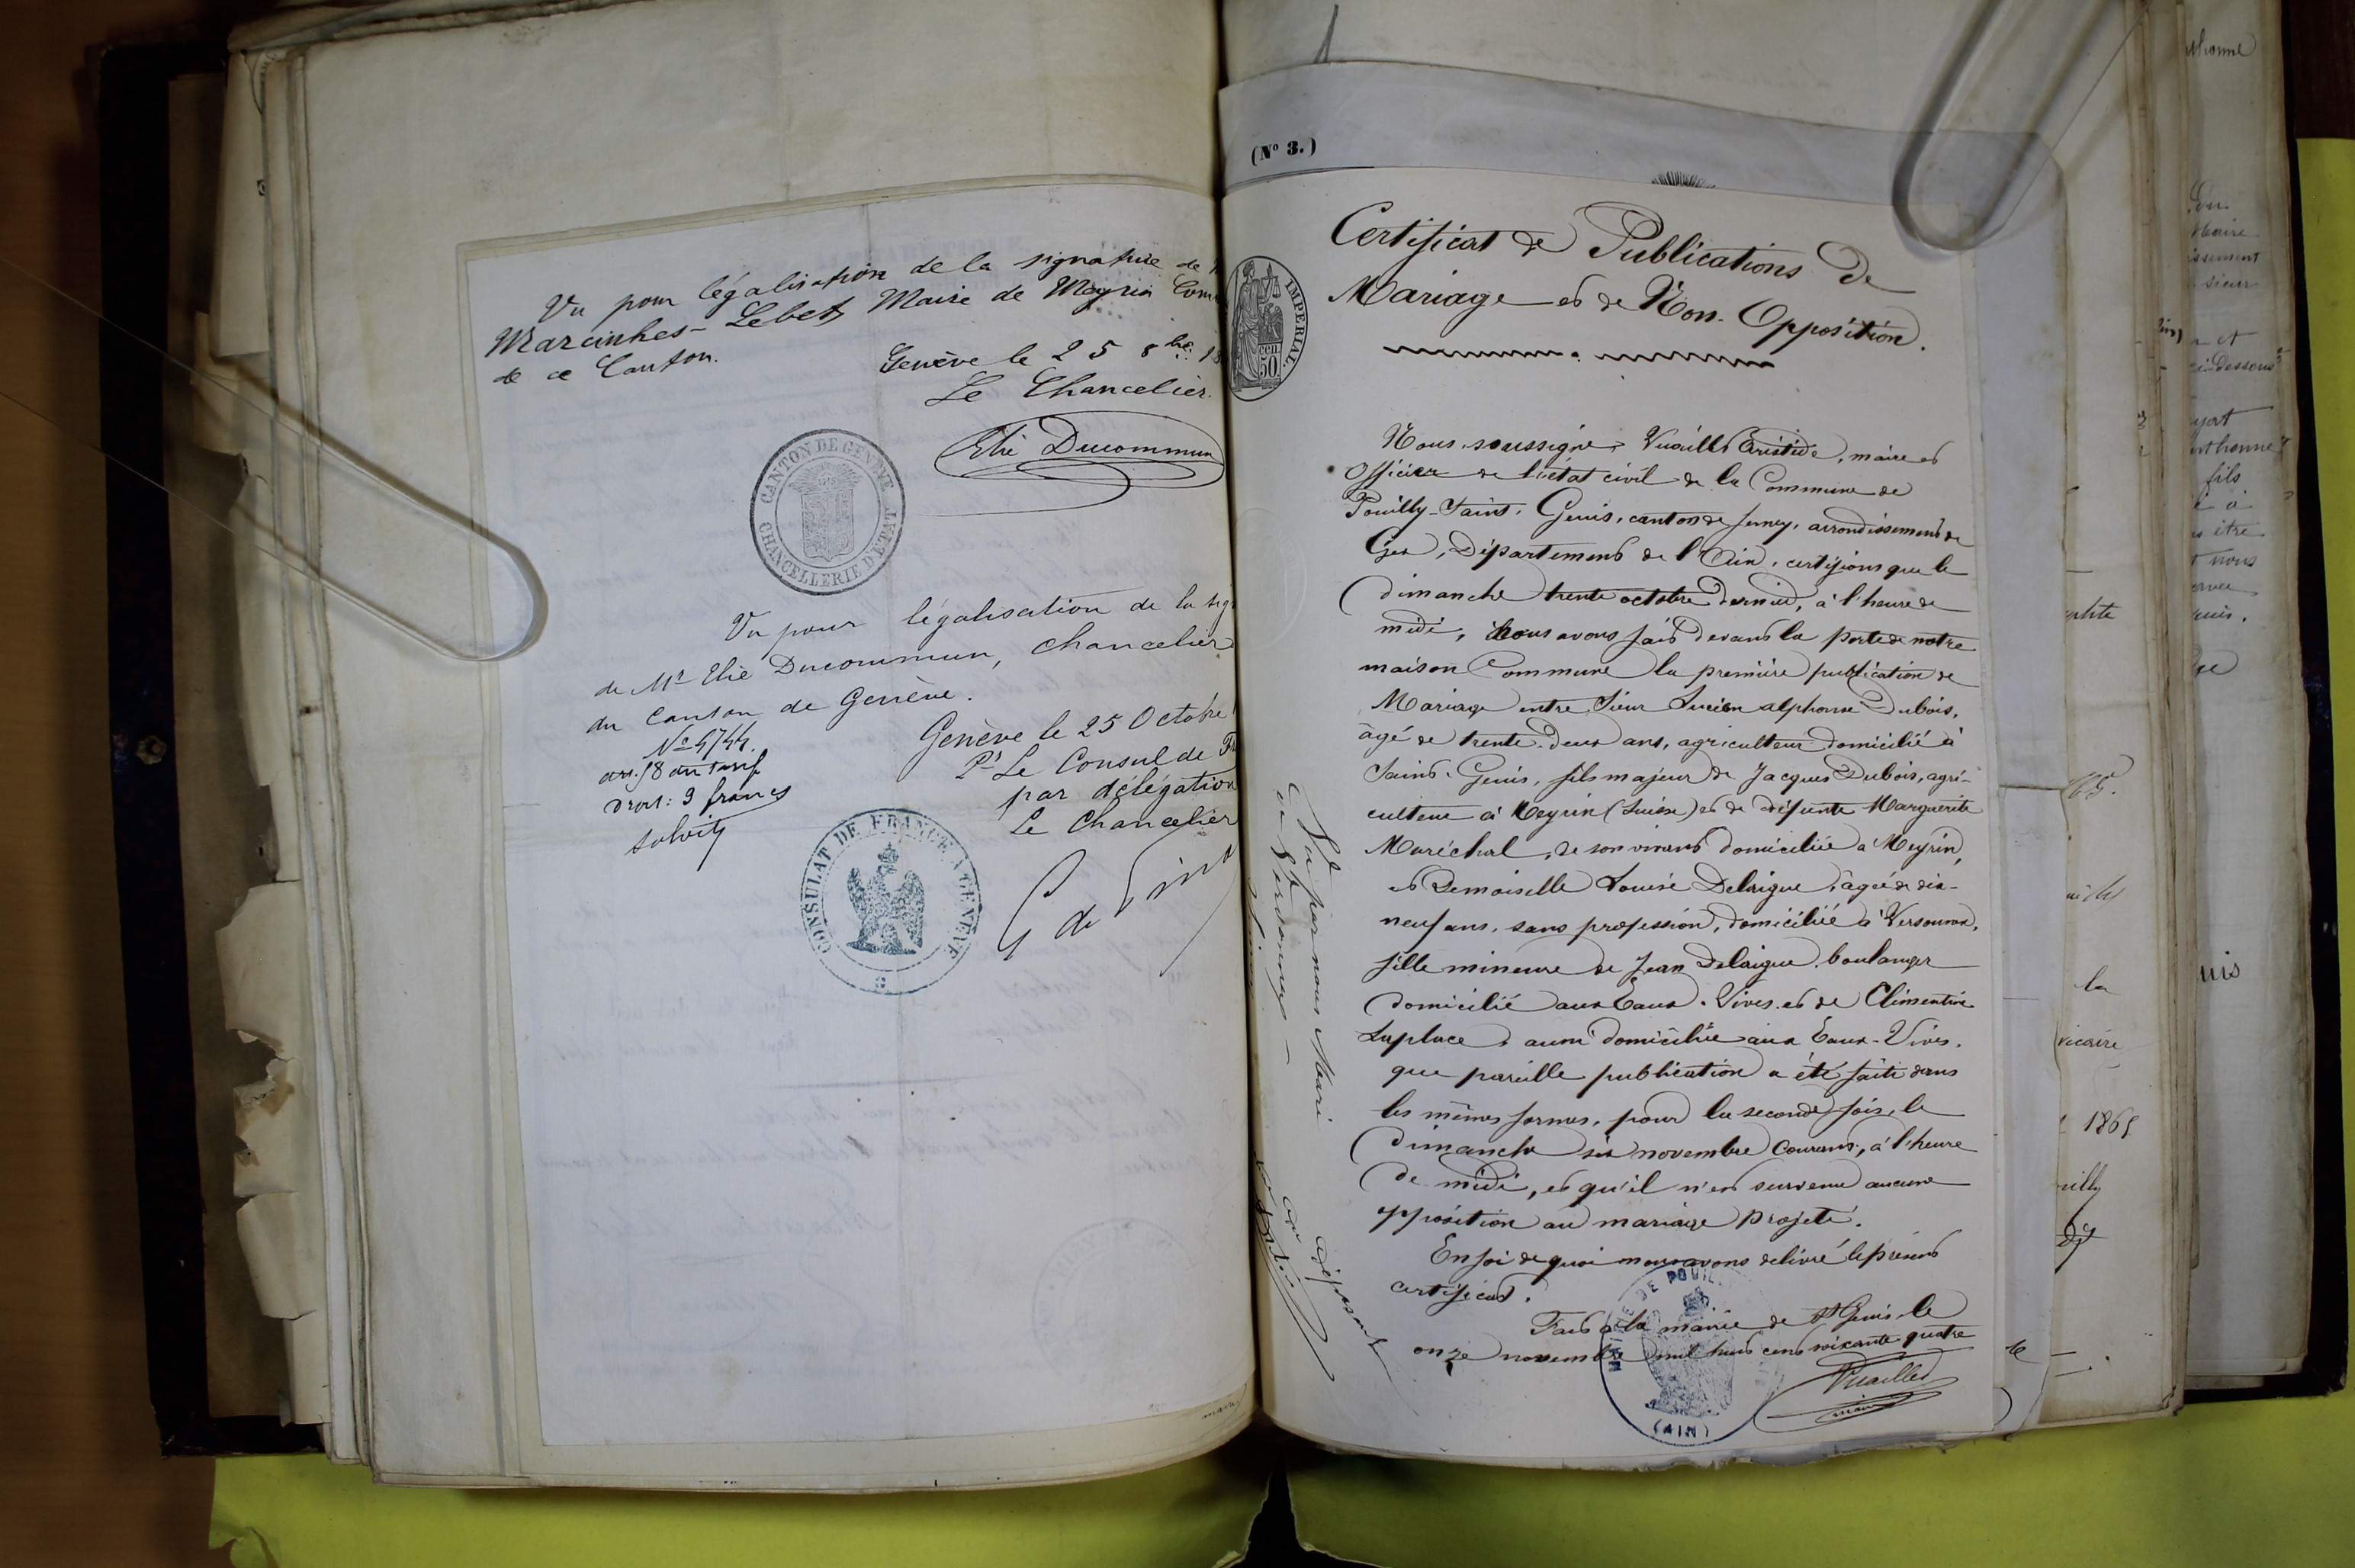 Vu pour légalisation de la signature de
Marcinhes-Lebet Maire de Meyrin
de ce Canton.
Genève le 25 8bre 18
Le Chancelier.
Elie Ducommun
CANTON DE GENEVE
CHANCELLERIE D'ETAT
Vu pour légalisation de la
de Mr Elie Ducommun, chancelier
du Canton de Genève.
Genève le 25 Octobre
Pr Le Consul de
par délégation
Le Chancelier
art. 18 du tarif
Droit: 9 francs
CONSULAT DE FRANCE A GENEVE
G de
(No 3.)
IMPERIAL.
50 cen
Certificat de Publications de
Mariage et de Non-Opposition.
Nous soussigné, Vuaillet Aristide, maire et
Officier de l'état civil de la Commune de
Pouilly-Saint-Genis, canton de Ferney, arrondissement de
Gex, Département de l'Ain, certifions que le
dimanche trente octobre dernier, à l'heure de
midi, nous avons fait devant la porte de notre
maison Commune la première publication de
Mariage entre Sieur Lucien alphonse Dubois,
âgé de trente-deux ans, agriculteur domicilié à
Saint-Genis, fils majeur de Jacques Dubois, agri-
culteur à Meyrin (Suisse) et de défunte Marguerite
Maréchal, de son vivant domiciliée à Meyrin,
et Demoiselle Louise Delaigue, âgée de dix-
neuf ans, sans profession, domiciliée à Versonnex,
fille mineure de Jean Delaigue, boulanger
domicilié aux Eaux-Vives et de Clémentine
Laplace, aussi domiciliée aux Eaux-Vives.
que pareille publication a été faite dans
les mêmes formes, pour la seconde fois, le
dimanche six novembre courant, à l'heure
de midi, et qu'il n'est survenu aucune
opposition au mariage projeté.
En foi de quoi nous avons délivré le présent
certificat.
Fait à la mairie de St Genis, le
onze novembre mil huit cent soixante quatre
Vuaillet
maire
(AIN)
1865
la
vicaire